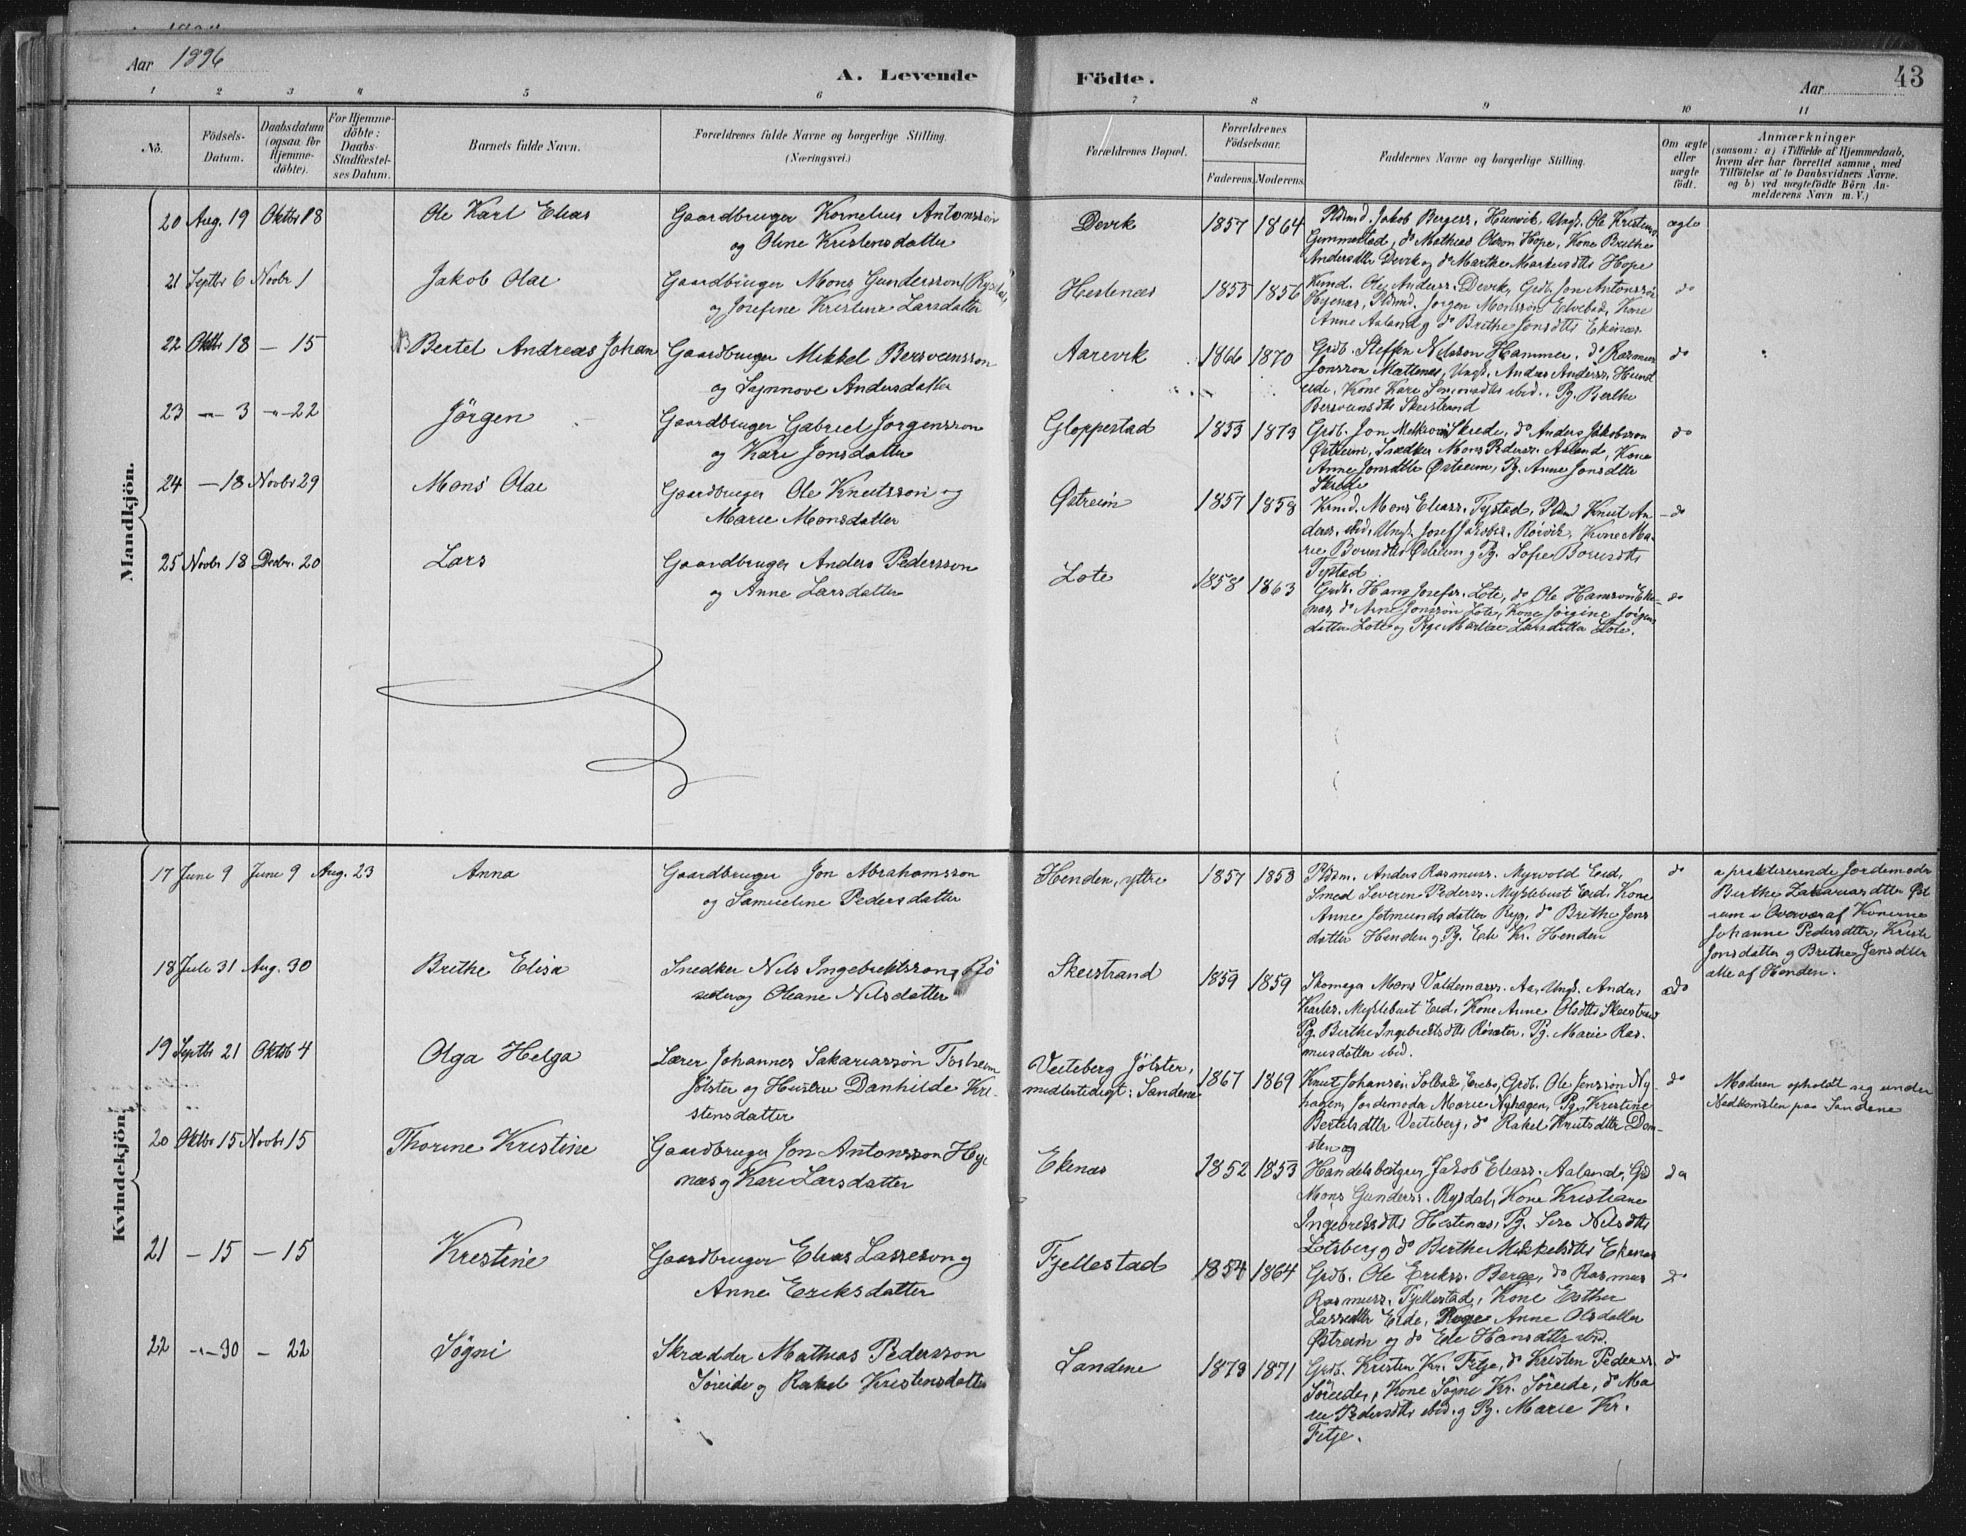 Aar 1896
A. Levende
Födte.
Aar
43
1 2 3 4 5 6 7 8 9 10 11
No.
Födsels-
Datum.
Daabsdatum
(ogsaa for
Hjemme-
döbte).
For Hjemme-
döbte:
Daabs-
Stadfæstel-
ses Datum.
Barnets fulde Navn.
Forældrenes fulde Navne og borgerlige Stilling.
(Næringsvei.)
Forældrenes Bopæl.
Forældrenes
Födselsaar.
Faderens. Moderens.
Faddernes Navne og borgerlige Stilling.
Om ægte
eller
uægte
födt.
Anmærkninger
(saasom: a) i Tilfælde af Hjemmedaab,
hvem der har forrettet samme, med
Tilföielse af to Daabsvidners Navne.
og b) ved uægtefödte Börn An-
melderens Navn m. V.)
Mandkjön.
20 Aug. 19 Oktbr 18 Ole Karl Elias
Gaardbruger Kornelius Antonsson
og Oline Kristensdatter
Devik 1857 1864
Pldmd. Jakob Bergess. Hunvik, Ungk. Ole Kristens.
Gimmestad, do Mathias Olson Hope, Kone Brithe
Andersdtr Devik og do Marthe Markusdtr Hope
ægte
21 Septbr 6 Novbr 1 Jakob Olai
Gaardbruger Mons Gundersson Rysdal
og Josefine Kristine Larsdatter
Hestenæs 1855 1856
Kmd. Ole Anderss. Devik, Grdb. Jon Antonssön
Hyenæs, Pldmd. Jörgen Monssön Elvebad, Kone
Anne Aaland og do Brithe Jonsdtr Ekenæs
do
22 Oktbr 18 — 15 Bertel Andreas Johan
Gaardbruger Mikkel Bersveinsson
og Synnove Andersdatter
Aarevik 1866 1870
Grdb. Steffen Nilsson Hammer, do Rasmus
Jonsson Mættenæs, Ungk. Andas Anderss. Hund
eide, Kone Kari Simonsdtr ibid., Pg. Berthe
Bersveinsdtr Skeistrand
do
23 — 3 — 22 Jörgen
Gaardbruger Gabriel Jörgensson
og Kari Jonsdatter
Gloppestad 1853 1873
Grdb. Jon Mikkelson Skrede, do Anders Jakobsson
Østreim, Snedker Mons Pederss. Aaland, Kone
Anne Jonsdtr Østreim, Pg. Anne Jonsdtr
Skrede
do
24 — 18 Novbr 29 Mons Olai
Gaardbruger Ole Knutsson og
Marie Monsdatter
Østreim 1857 1858
Kmd. Mons Eliass. Tystad, Pldmd Knut An-
derss. ibid. Ungk. Josef Jakobss. Röivik, Kone Ma-
rie Børresdtr Østreim og Pg. Sofie Børresdtr
Tystad
do
25 Novbr 18 Decbr. 20 Lars
Gaardbruger Anders Pedersson
og Anne Larsdatter
Lote 1858 1863
Grdb. Hans Josefss. Lote, do Ole Hansson Eke-
næs, do Arne Jonsson Lote, Kone Jörgine Jörgens
datter Lote og Pige Marthe Larsdatter Lote.
do
Kvindekjön.
17 June 9 June 9 Aug. 23 Anna
Gaardbruger Jon Abrahamsson
og Samueline Pedersdatter
Henden, yttre 1857 1858
Pldm. Anders Rasmuss. Myrvold Eid,
Smed Severin Pederss. Myklebust Eid, Kone
Anne Jetmundsdatter Ryg, do Brithe Jens
datter Henden og Pg. Eli Kr. Henden
do
a praktiserende Jordemoder
Berthe Zakariasdtter Øst
reim i Overvær af Konerne
Johanne Pedersdtter, Kristi
Jonsdatter og Brithe Jensdtter
alle af Henden.
18 Juli 31 Aug. 30 Brithe Elisa
Snedker Nils Ingebriktsson Rö
seter og Oleane Nilsdatter
Skeistrand 1859 1859
Skomager Mons Valdemarss. Aa, Ungk. Anders
Karles. Myklebust Eid, Kone Anne Olsdtr Skeistrand
Pg. Berthe Ingebriktsdtr Röseter, Pg. Marie Ras-
musdatter ibid.
do
19 Septbr 21 Oktbr 4 Olga Helga
Lærer Johannes Sakariassön Torheim
Jölster og Hustru Danhilde Kri-
stensdatter
Veiteberg Jölster,
midlertidigt: Sandene
1867 1869
Knut Johansen Solbak Eids, Grdb. Ole Jenssön Ny-
hagen, Jordemoder Marie Nyhagen, Pg. Kristine
Bertelsdtr Veiteberg, do Rakel Knutsdtr Dom-
sten og
do
Moderen opholdt sig under
Nedkomsten paa Sandene
20 Oktbr 15 Novbr 15 Thorine Kristine
Gaardbruger Jon Antonsson Hye
næs og Kari Larsdatter
Ekenæs 1852 1853
Handelsbetjen Jakob Eliass. Aaland, Grd
Mons Gunderss. Rysdal, Kone Kristiane
Ingebretsdtr Hestenæs, Pg. Sira Nilsdtr
Lotsberg og do Berthe Mikkelsdtr Ekenæs
do
21 — 15 — 15 Kristine
Gaardbruger Elias Lasseson og
Anne Eriksdatter
Fjellestad 1854 1864
Grdb. Ole Erikss. Berge, do Rasmus
Rasmuss. Fjellestad, Kone Esther
Lassedtr Eide, Pige Anne Olsdatter
Østreim og do Eli Hansdtr ibid.
do
22 — 30 — 22 Søgni
Skrædder Mathias Pedersson
Søreide og Rakel Kristensdatter
Sandene 1873 1871
Grdb. Kristen Kr. Fitje, do Kristen Pederss.
Søreide, Kone Søgni Kr. Søreide, do Ma
rie Pedersdtr ibid. og Pg. Marie Kr.
Fitje.
do